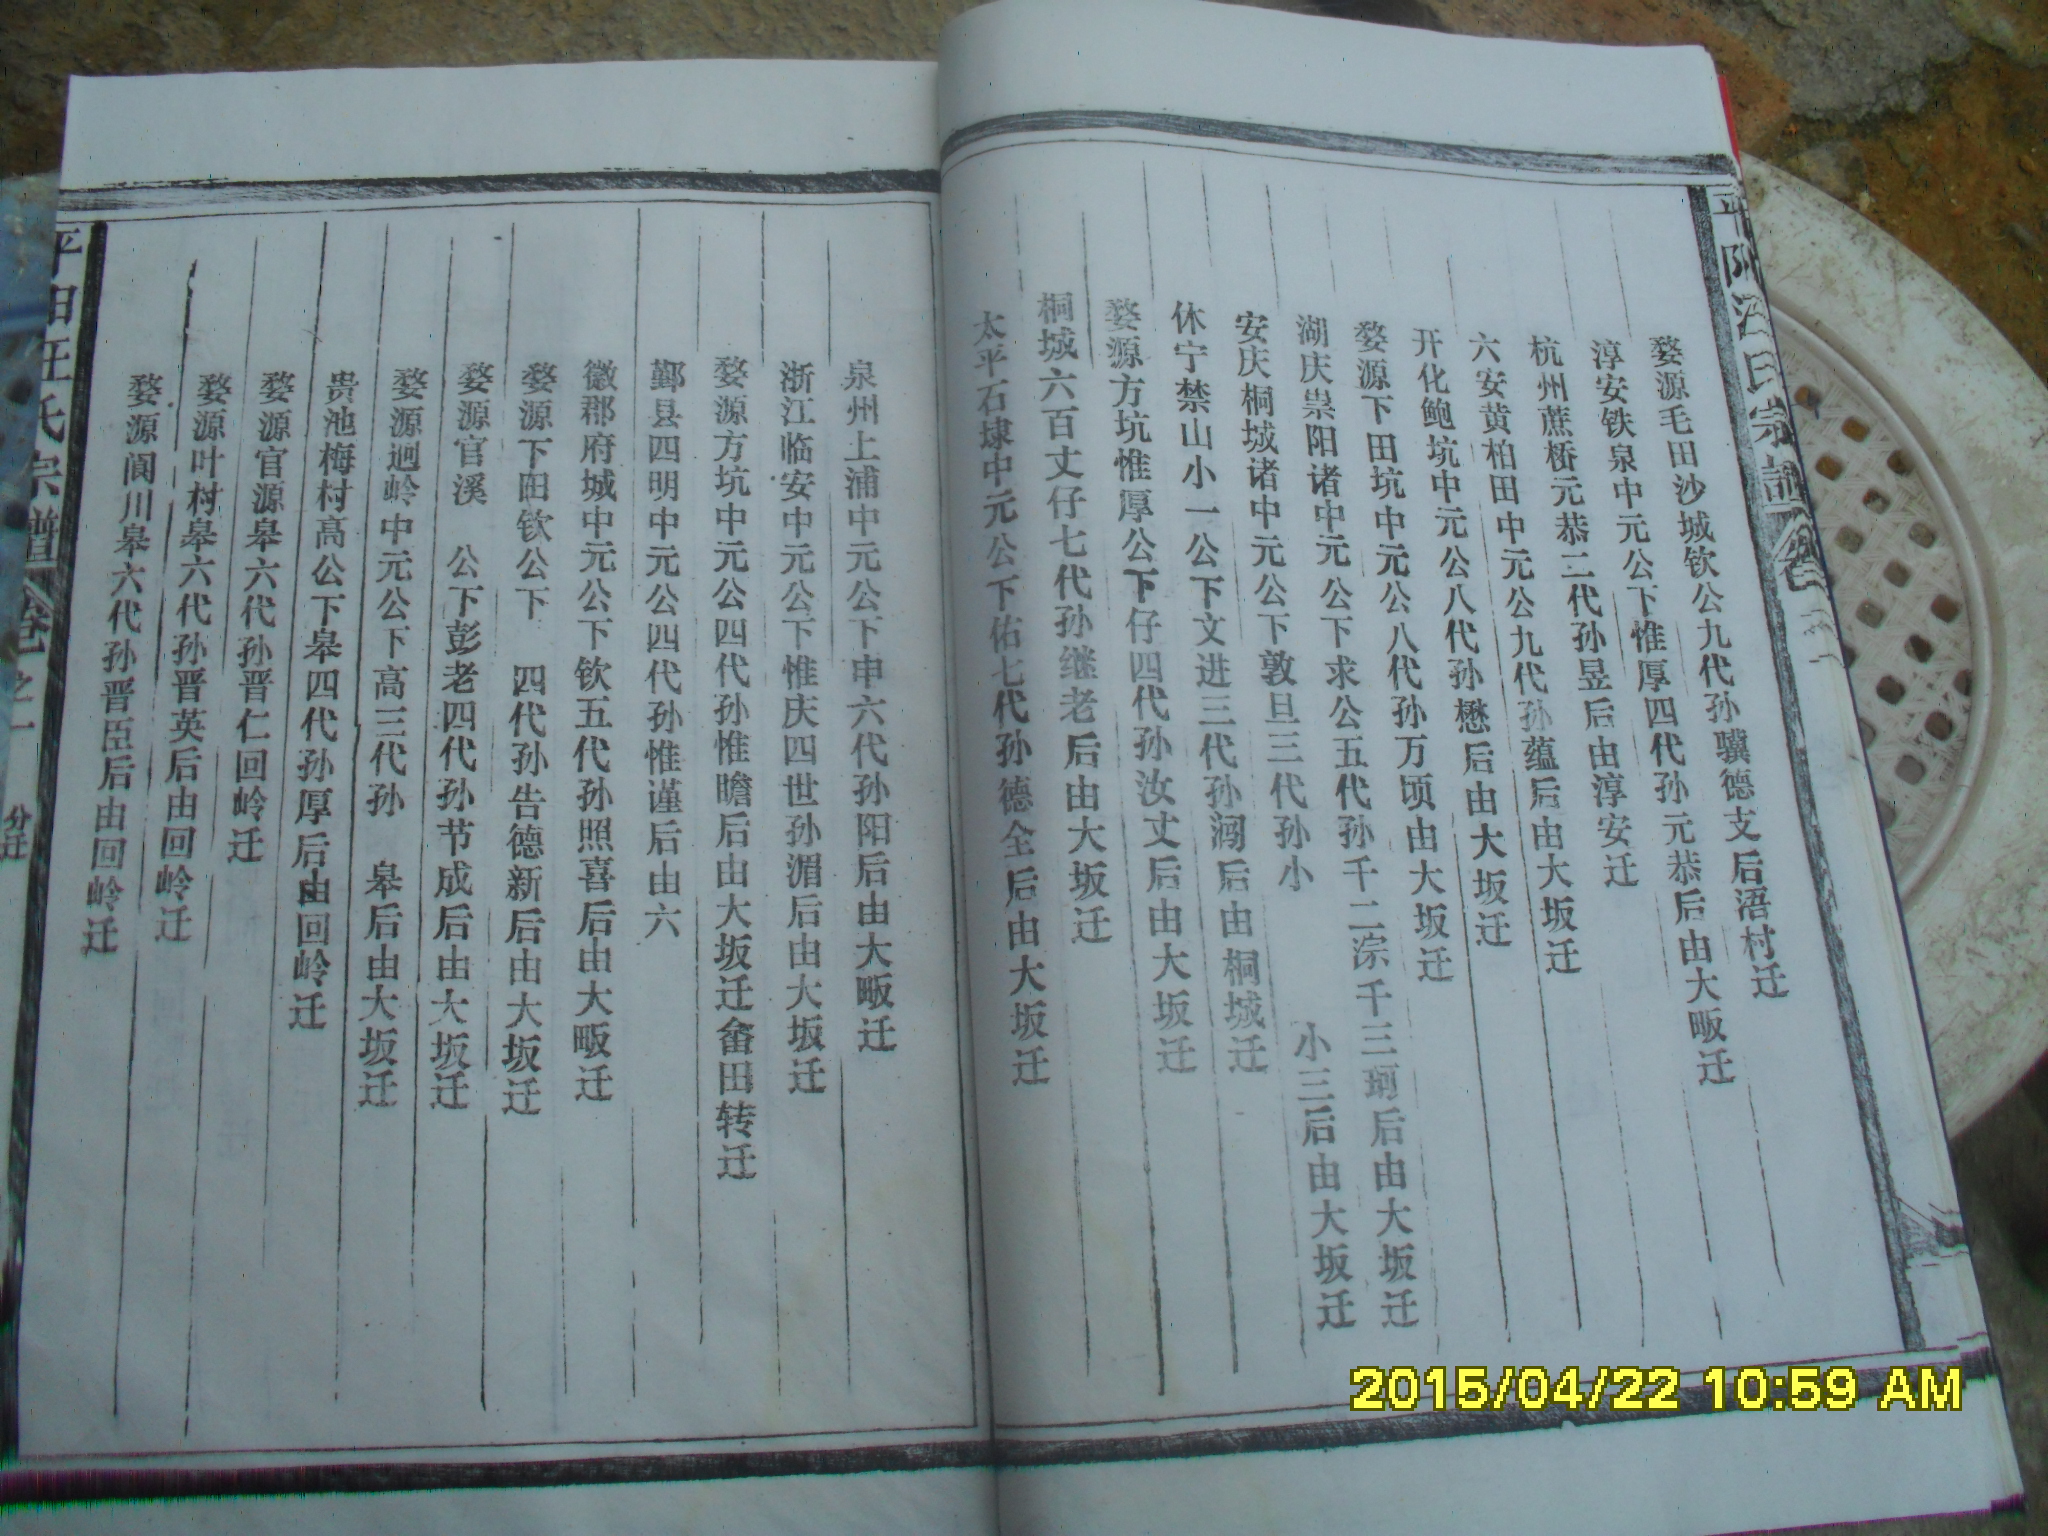 平阳汪氏宗谱
婺源毛田沙城钦公九代孙骥德支后浯村迁
淳安铁泉中元公下惟厚四代孙元恭后由大畈迁
杭州蔗桥元恭二代孙昱后由淳安迁
六安黄柏田中元公九代孙蕴后由大坂迁
开化鲍坑中元公八代孙懋后由大坂迁
婺源下田坑中元公八代孙万顷由大坂迁
湖庆祟阳诸中元公下求公五代孙千二淙千三珂后由大坂迁
安庆桐城诸中元公下敦旦三代孙小 小三后由大坂迁
休宁禁山小一公下文进三代孙澖后由桐城迁
婺源方坑惟厚公下仔四代孙汝丈后由大坂迁
桐城六百丈仔七代孙继老后由大坂迁
太平石埭中元公下佑七代孙德全后由大坂迁
泉州上浦中元公下申六代孙阳后由大畈迁
浙江临安中元公下惟庆四世孙湄后由大坂迁
婺源方坑中元公四代孙惟瞻后由大坂迁畲田转迁
鄞县四明中元公四代孙惟谨后由六
徽郡府城中元公下钦五代孙照喜后由大畈迁
婺源下田钦公下 四代孙告德新后由大坂迁
婺源官溪 公下彭老四代孙节成后由大坂迁
婺源迥岭中元公下高三代孙 皋后由大坂迁
贵池梅村高公下皋四代孙厚后由回岭迁
婺源官源皋六代孙晋仁回岭迁
婺源叶村皋六代孙晋英后由回岭迁
婺源阆川皋六代孙晋臣后由回岭迁
平阳汪氏宗谱 卷之二 分迁
2015/04/22 10:59 AM